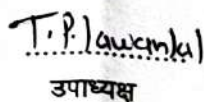 T.P. Lawankar
उपाध्यक्ष